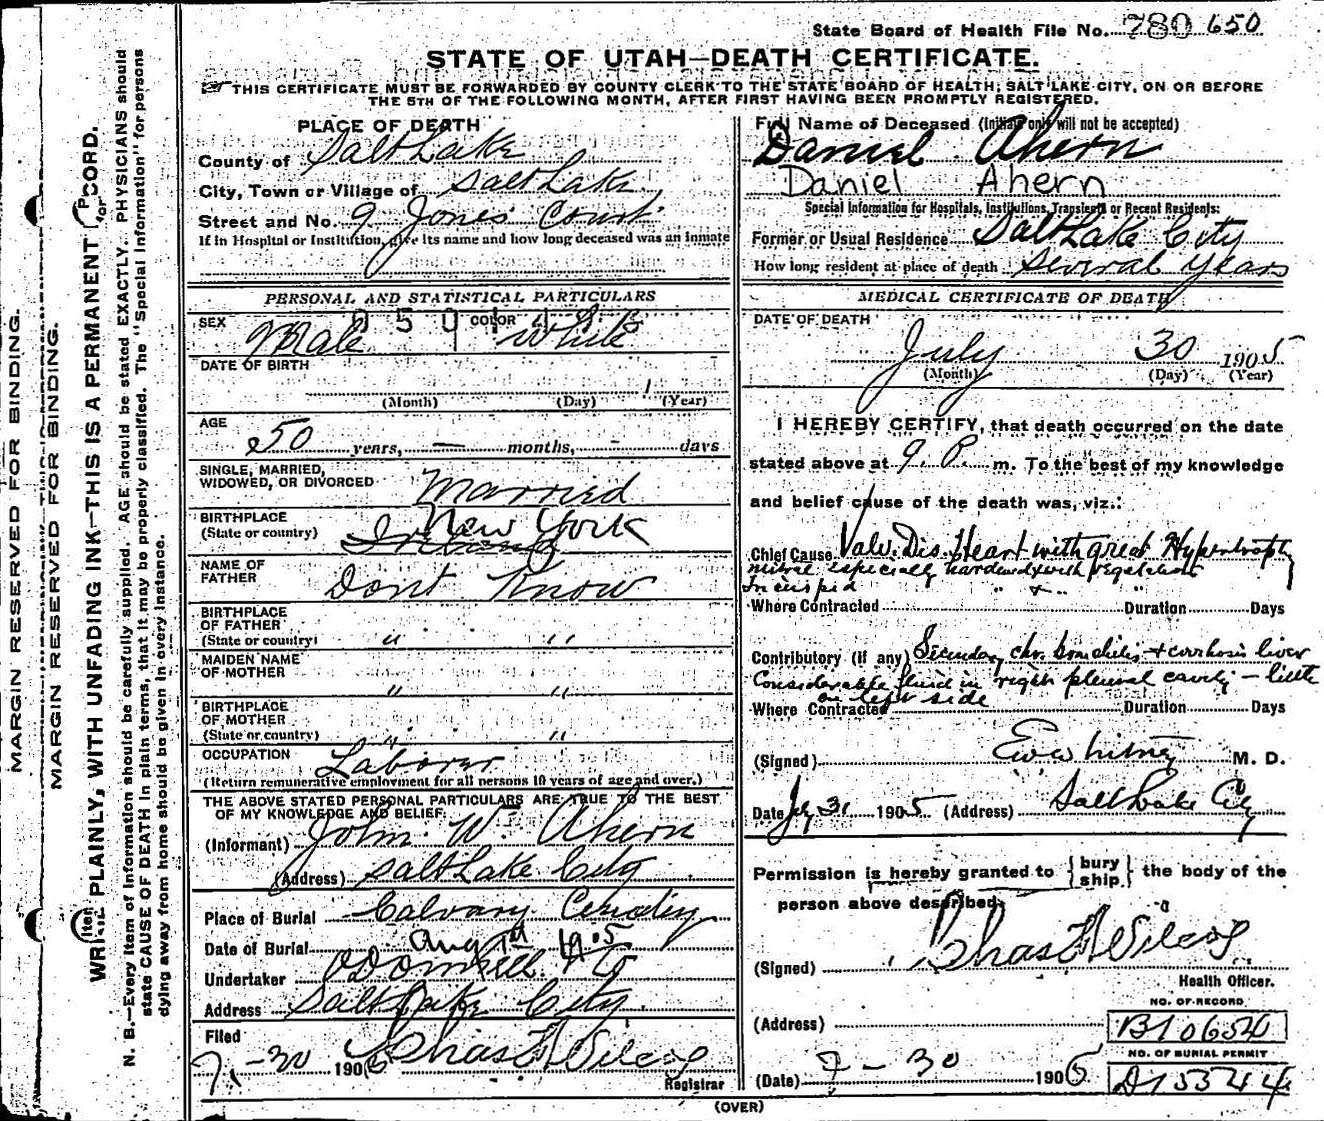 State Board of Health File No. 780 650
STATE OF UTAH—DEATH CERTIFICATE.
THIS CERTIFICATE MUST BE FORWARDED BY COUNTY CLERK TO THE STATE BOARD OF HEALTH, SALT LAKE CITY, ON OR BEFORE
THE 5TH OF THE FOLLOWING MONTH, AFTER FIRST HAVING BEEN PROMPTLY REGISTERED.
MARGIN RESERVED FOR BINDING.
MARGIN RESERVED FOR BINDING.
WRITE PLAINLY, WITH UNFADING INK—THIS IS A PERMANENT RECORD.
N. B.—Every item of information should be carefully supplied. AGE should be stated EXACTLY. PHYSICIANS should
state CAUSE OF DEATH in plain terms, that it may be properly classified. The "Special Information" for persons
dying away from home should be given in every instance.
PLACE OF DEATH
County of Salt Lake
City, Town or Village of Salt Lake
Street and No. 9 Jones Court
If in Hospital or Institution, give its name and how long deceased was an inmate
PERSONAL AND STATISTICAL PARTICULARS
SEX Male COLOR White
DATE OF BIRTH
(Month) (Day) (Year)
AGE
50 years, — months, - days
SINGLE, MARRIED,
WIDOWED, OR DIVORCED Married
BIRTHPLACE
(State or country) New York
Ireland
NAME OF
FATHER Dont Know
BIRTHPLACE
OF FATHER
(State or country) " "
MAIDEN NAME
OF MOTHER " "
BIRTHPLACE
OF MOTHER
(State or country) " "
OCCUPATION Laborer
(Return remunerative employment for all persons 10 years of age and over.)
THE ABOVE STATED PERSONAL PARTICULARS ARE TRUE TO THE BEST
OF MY KNOWLEDGE AND BELIEF.
(Informant) John W. Ahern
(Address) Salt Lake City
Place of Burial Calvary Cemetery
Date of Burial Aug 1st 1905
Undertaker O'Donnell & Co
Address Salt Lake City
Filed
7-30 1905 Chas F Wilcox
Registrar
Full Name of Deceased (Initials only will not be accepted)
Daniel Ahern
Daniel Ahern
Special Information for Hospitals, Institutions, Transients or Recent Residents:
Former or Usual Residence Salt Lake City
How long resident at place of death Several years
MEDICAL CERTIFICATE OF DEATH
DATE OF DEATH
July 30 1905
(Month) (Day) (Year)
I HEREBY CERTIFY, that death occurred on the date
stated above at 9. P. m. To the best of my knowledge
and belief cause of the death was, viz.:
Chief Cause Valv. Dis. Heart with great Hypertrophy
mitral especially hardened & with vegetations
Tricuspid " + "
Where Contracted Duration Days
Contributory (if any) Secondary chr. bronchitis + cirrhosis liver
Considerable fluid in right pleural cavity — little
on left side
Where Contracted Duration Days
(Signed) E W Whitney M. D.
Date July 31 1905 (Address) Salt Lake City
Permission is hereby granted to { bury ship } the body of the
person above described.
(Signed) Chas F Wilcox
Health Officer.
NO. OF RECORD
(Address) B10650
NO. OF BURIAL PERMIT
(Date) 7-30 1905 D15344
(OVER)